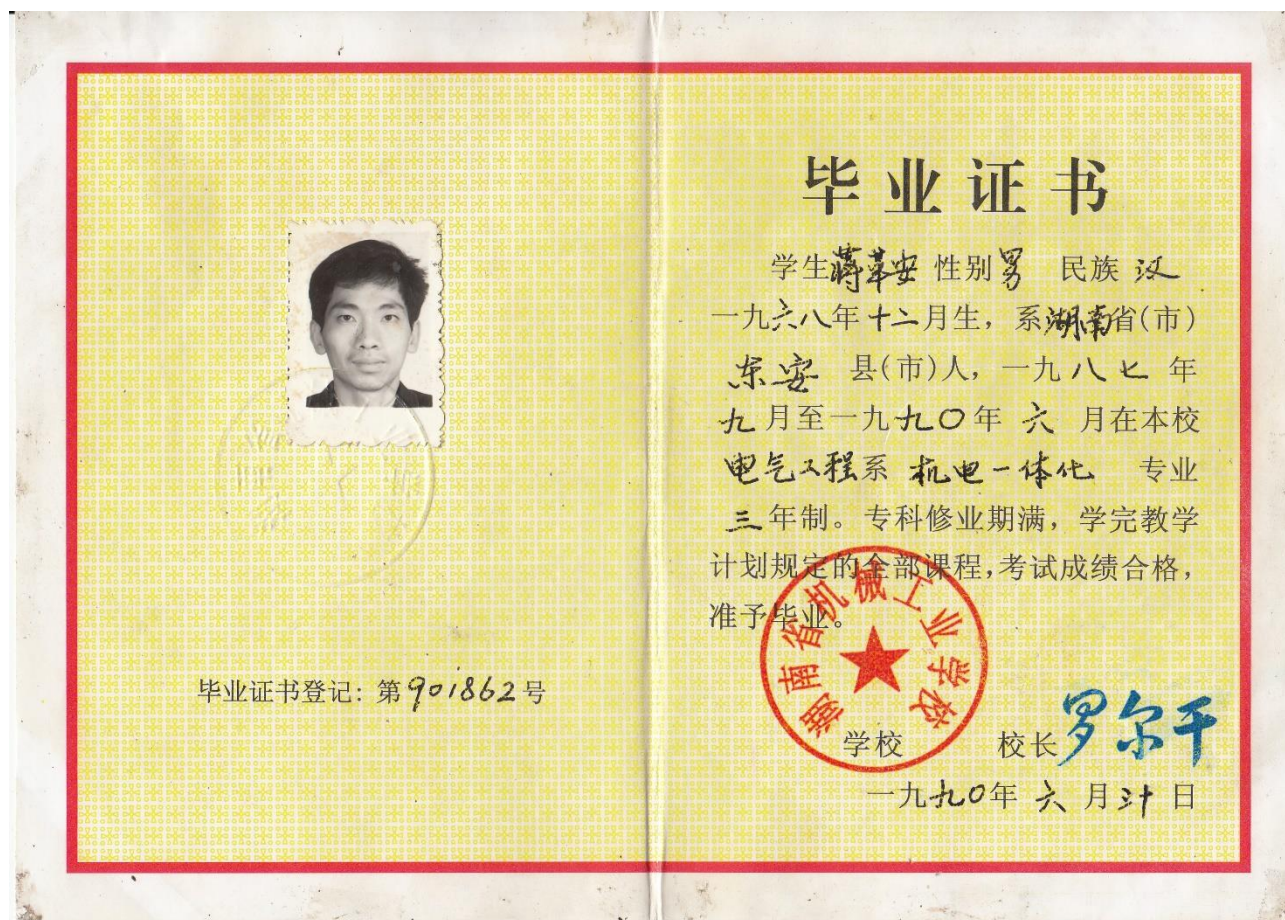 毕业证书登记: 第901862号
毕业证书
学生蒋革安 性别男 民族 汉
一九六八年十二月生, 系湖南省(市)
东安 县(市)人, 一九八七年
九月至一九九〇年 六 月在本校
电气工程系 机电一体化 专业
三年制。专科修业期满, 学完教学
计划规定的全部课程, 考试成绩合格,
准予毕业。
湖南省机械工业学校
学校 校长罗尔干
一九九〇年 六 月三十日